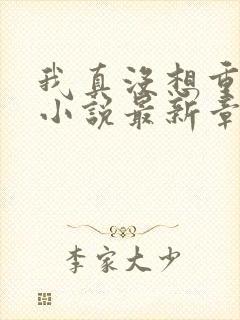 我真没想重
小说最新章
李家大少